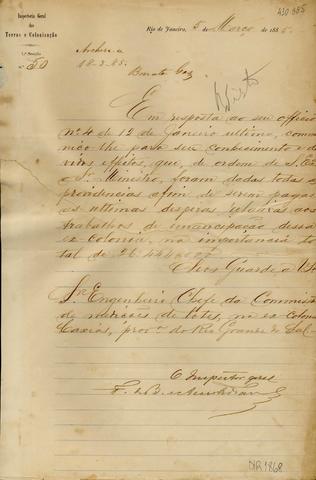 Inspectoria Geral
das
Terras e Colonização
1ª Secção
Nº 50
Rio de Janeiro, 5 de Março de 1885.
430 885
Archive-se
18-3-85.
Em resposta ao seu officio
nº 4 de 12 de Janeiro ultimo, commu
nico-lhe para seu conhecimento e de
vidos effeitos, que, de ordem de S. Exª
o Sr. Ministro, foram dadas todas as
providencias afim de serem pagas
as ultimas despezas relativas aos
trabalhos de emancipação dessa
ex colonia, na importancia to
tal de
Deos Guarde a Vª
Sr. Engenheiro Chefe da Commissão
de medições de lotes, na ex colonia
Caxias, provª do Rio Grande do Sul-
O Inspector geral
F. de B.
NR 1868